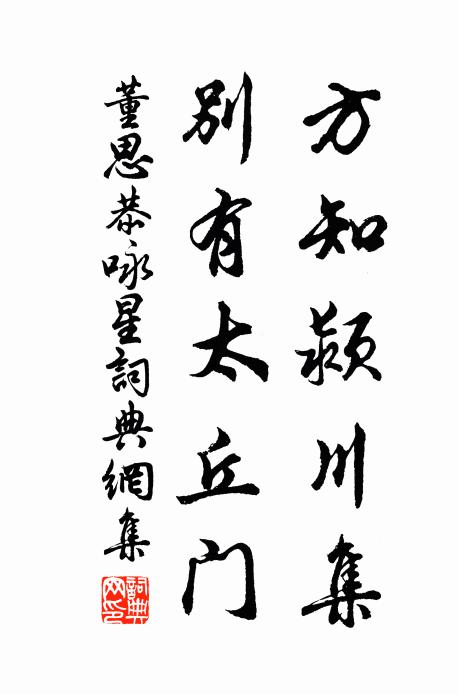 方知颍川集
别有太丘门
董思恭咏星詞典網集
詞典网印